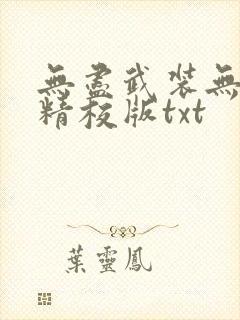 無盡武裝無
精校版txt
葉靈鳳